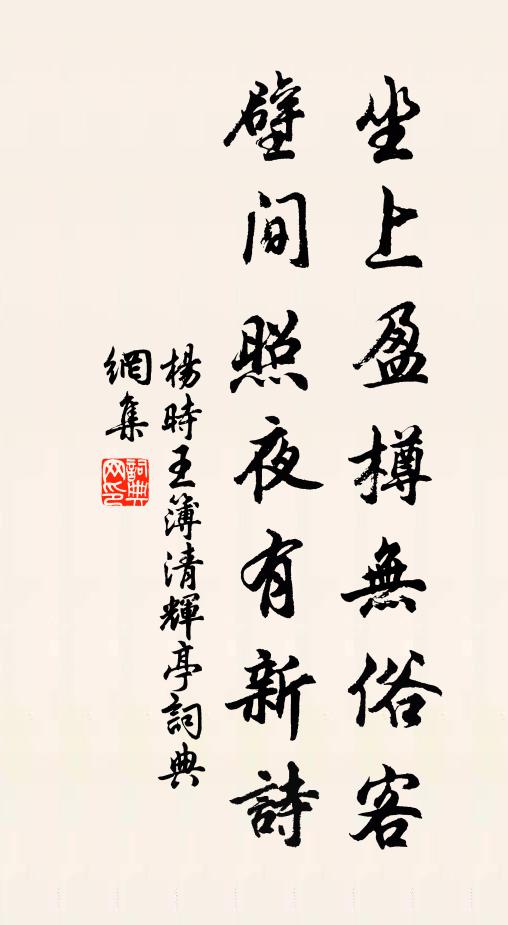 坐上盈樽無俗客
壁間照夜有新詩
楊時王簿清輝亭詞典
網集
詞典網印